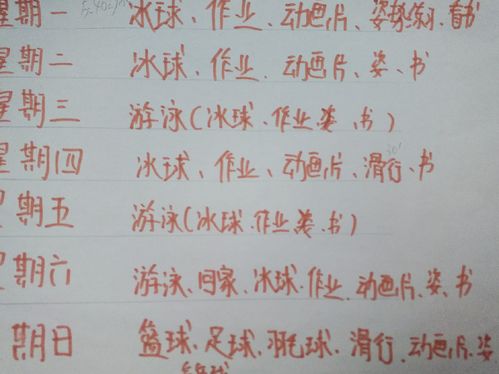 星期一 冰球、作业、动画片、姿势练习、看书
星期二 冰球、作业、动画片、姿、书
星期三 游泳(冰球、作业姿、书)
星期四 冰球、作业、动画片、滑行、书
期五 游泳(冰球.作业姿.书)
期六 游泳、回家、冰球.作业、动画片、姿、书
期日 篮球、足球、羽毛球、滑行、动画片、姿